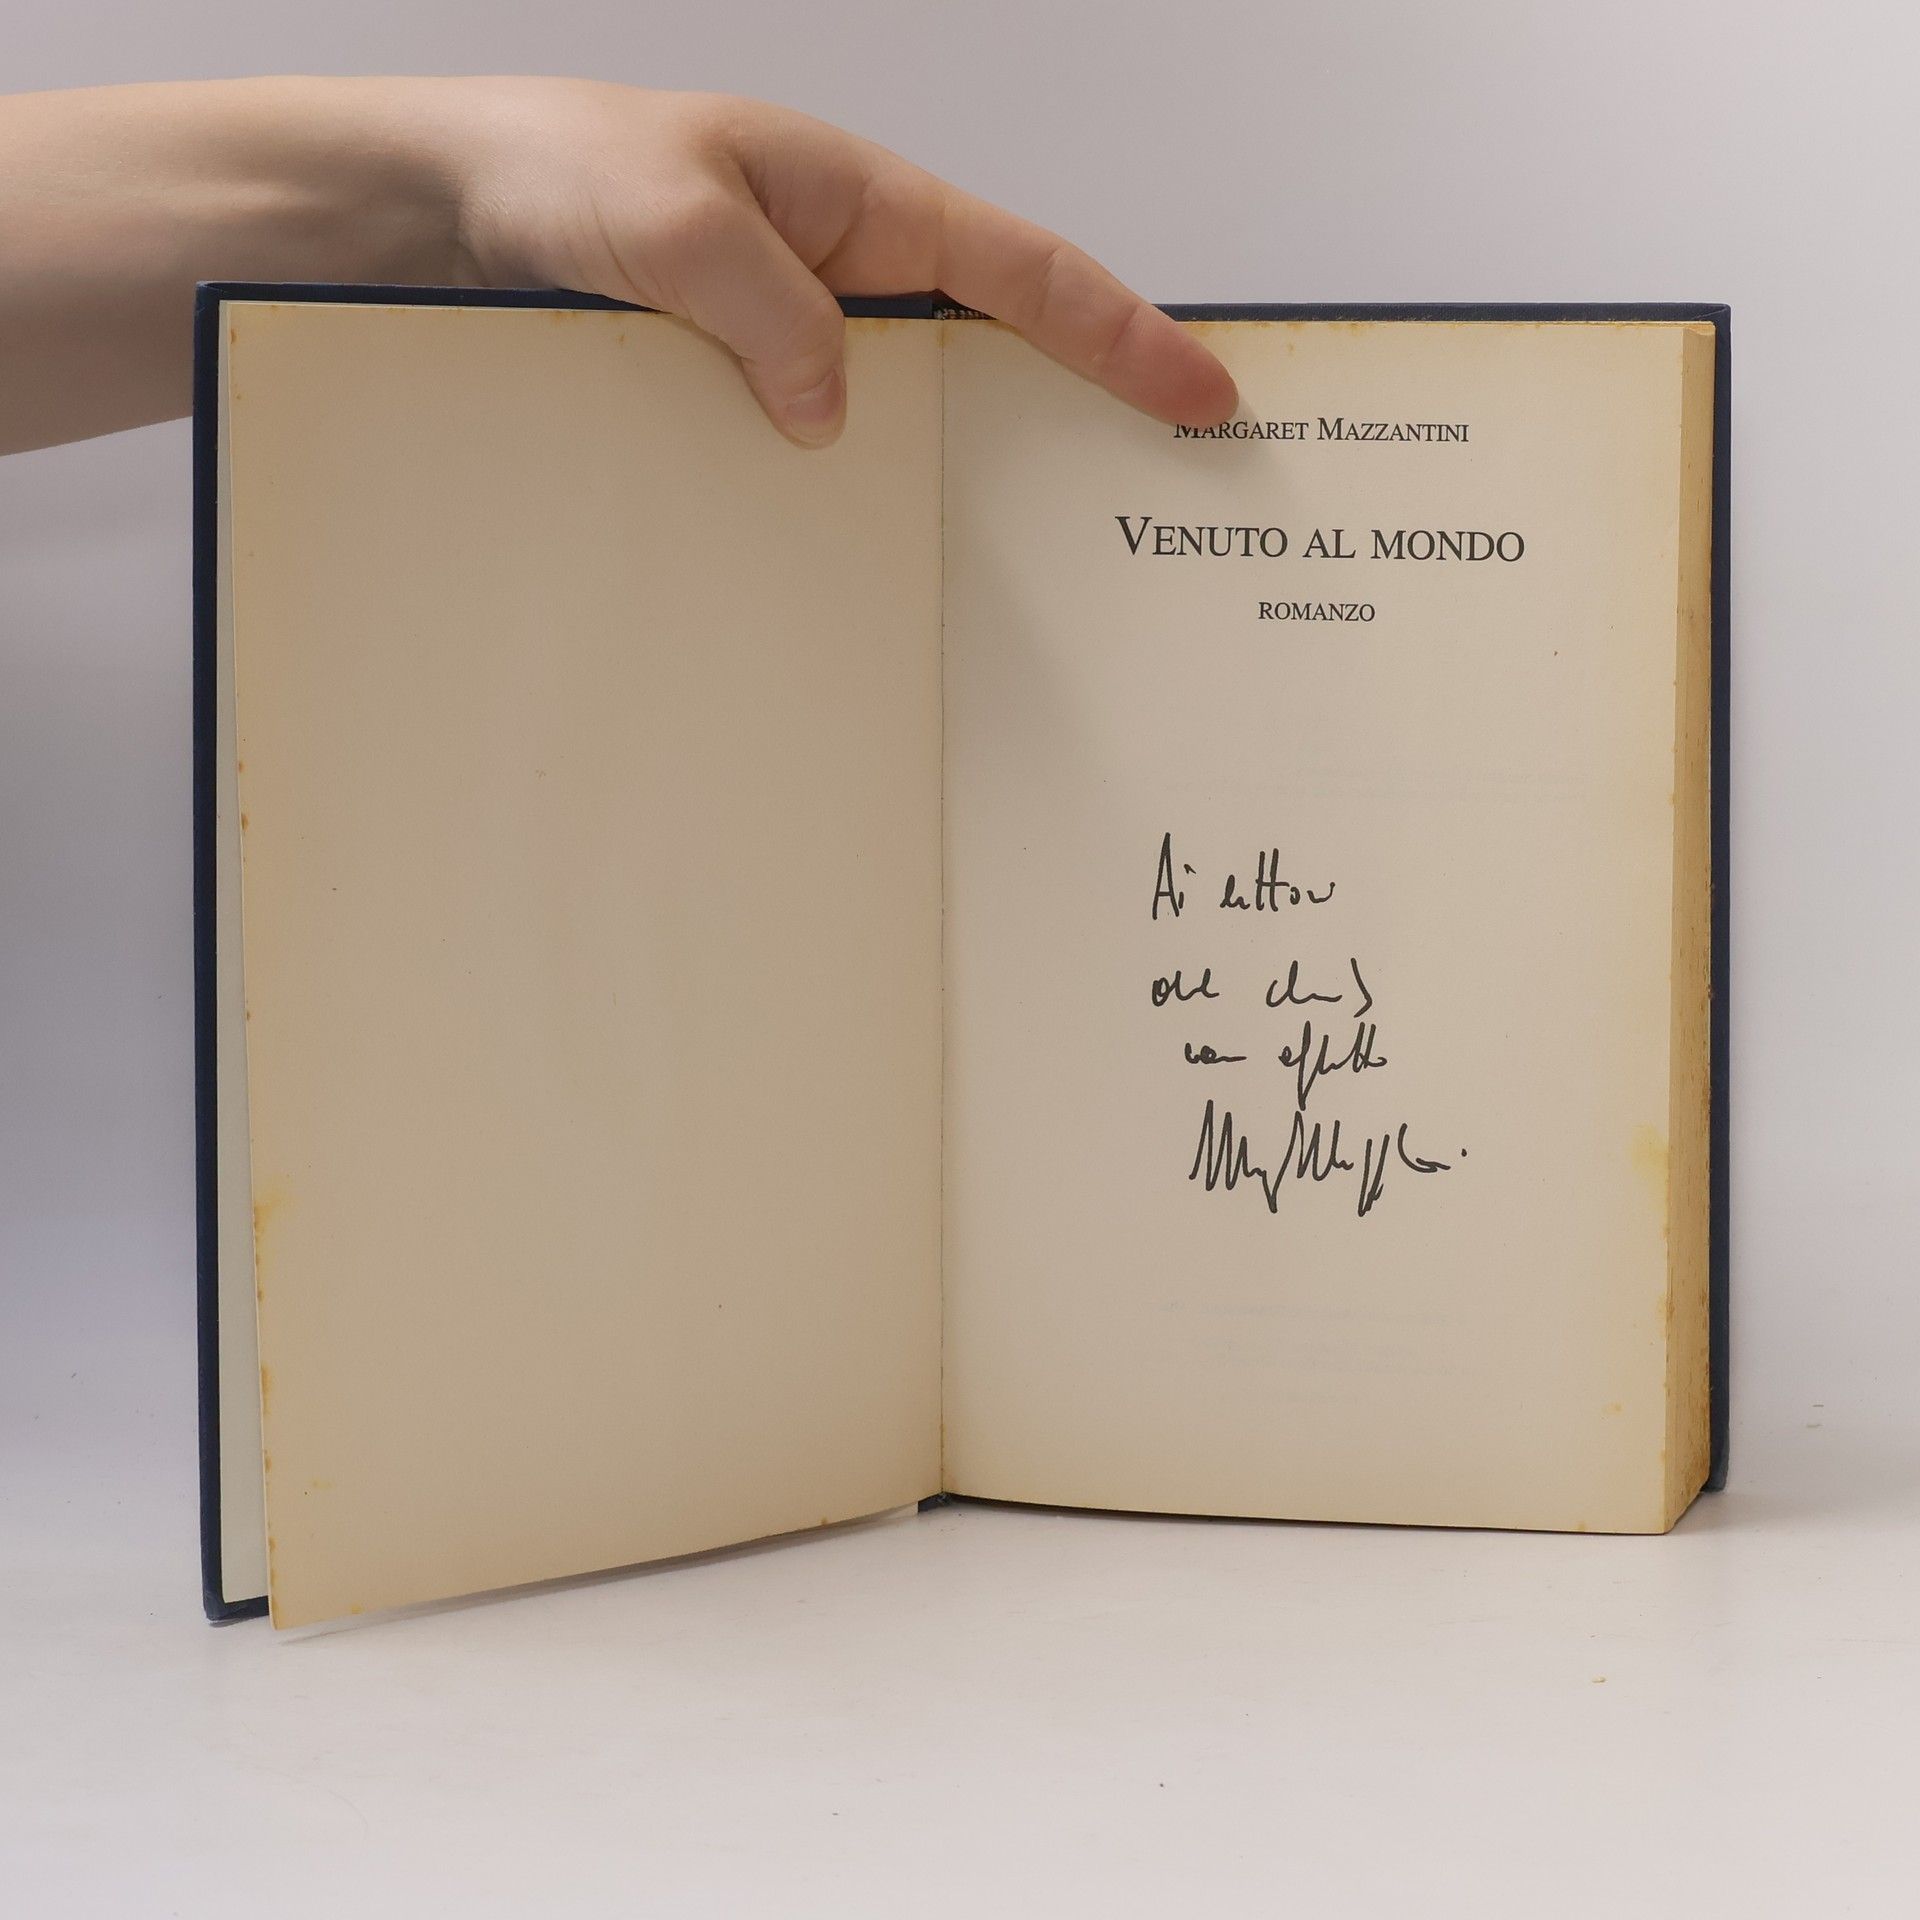 MARGARET MAZZANTINI
VENUTO AL MONDO
ROMANZO
Ai lettori
del club
con affetto